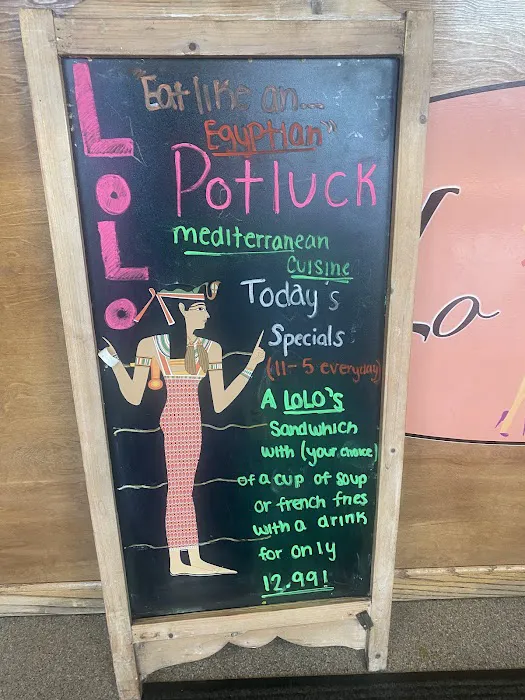 LoLo
"Eat like an...
Egyptian"
Potluck
mediterranean
cuisine
Today's
Specials
(11-5 everyday)
A LOLO'S
Sandwhich
with (your choice)
of a cup of soup
or french fries
with a drink
for only
12.99!